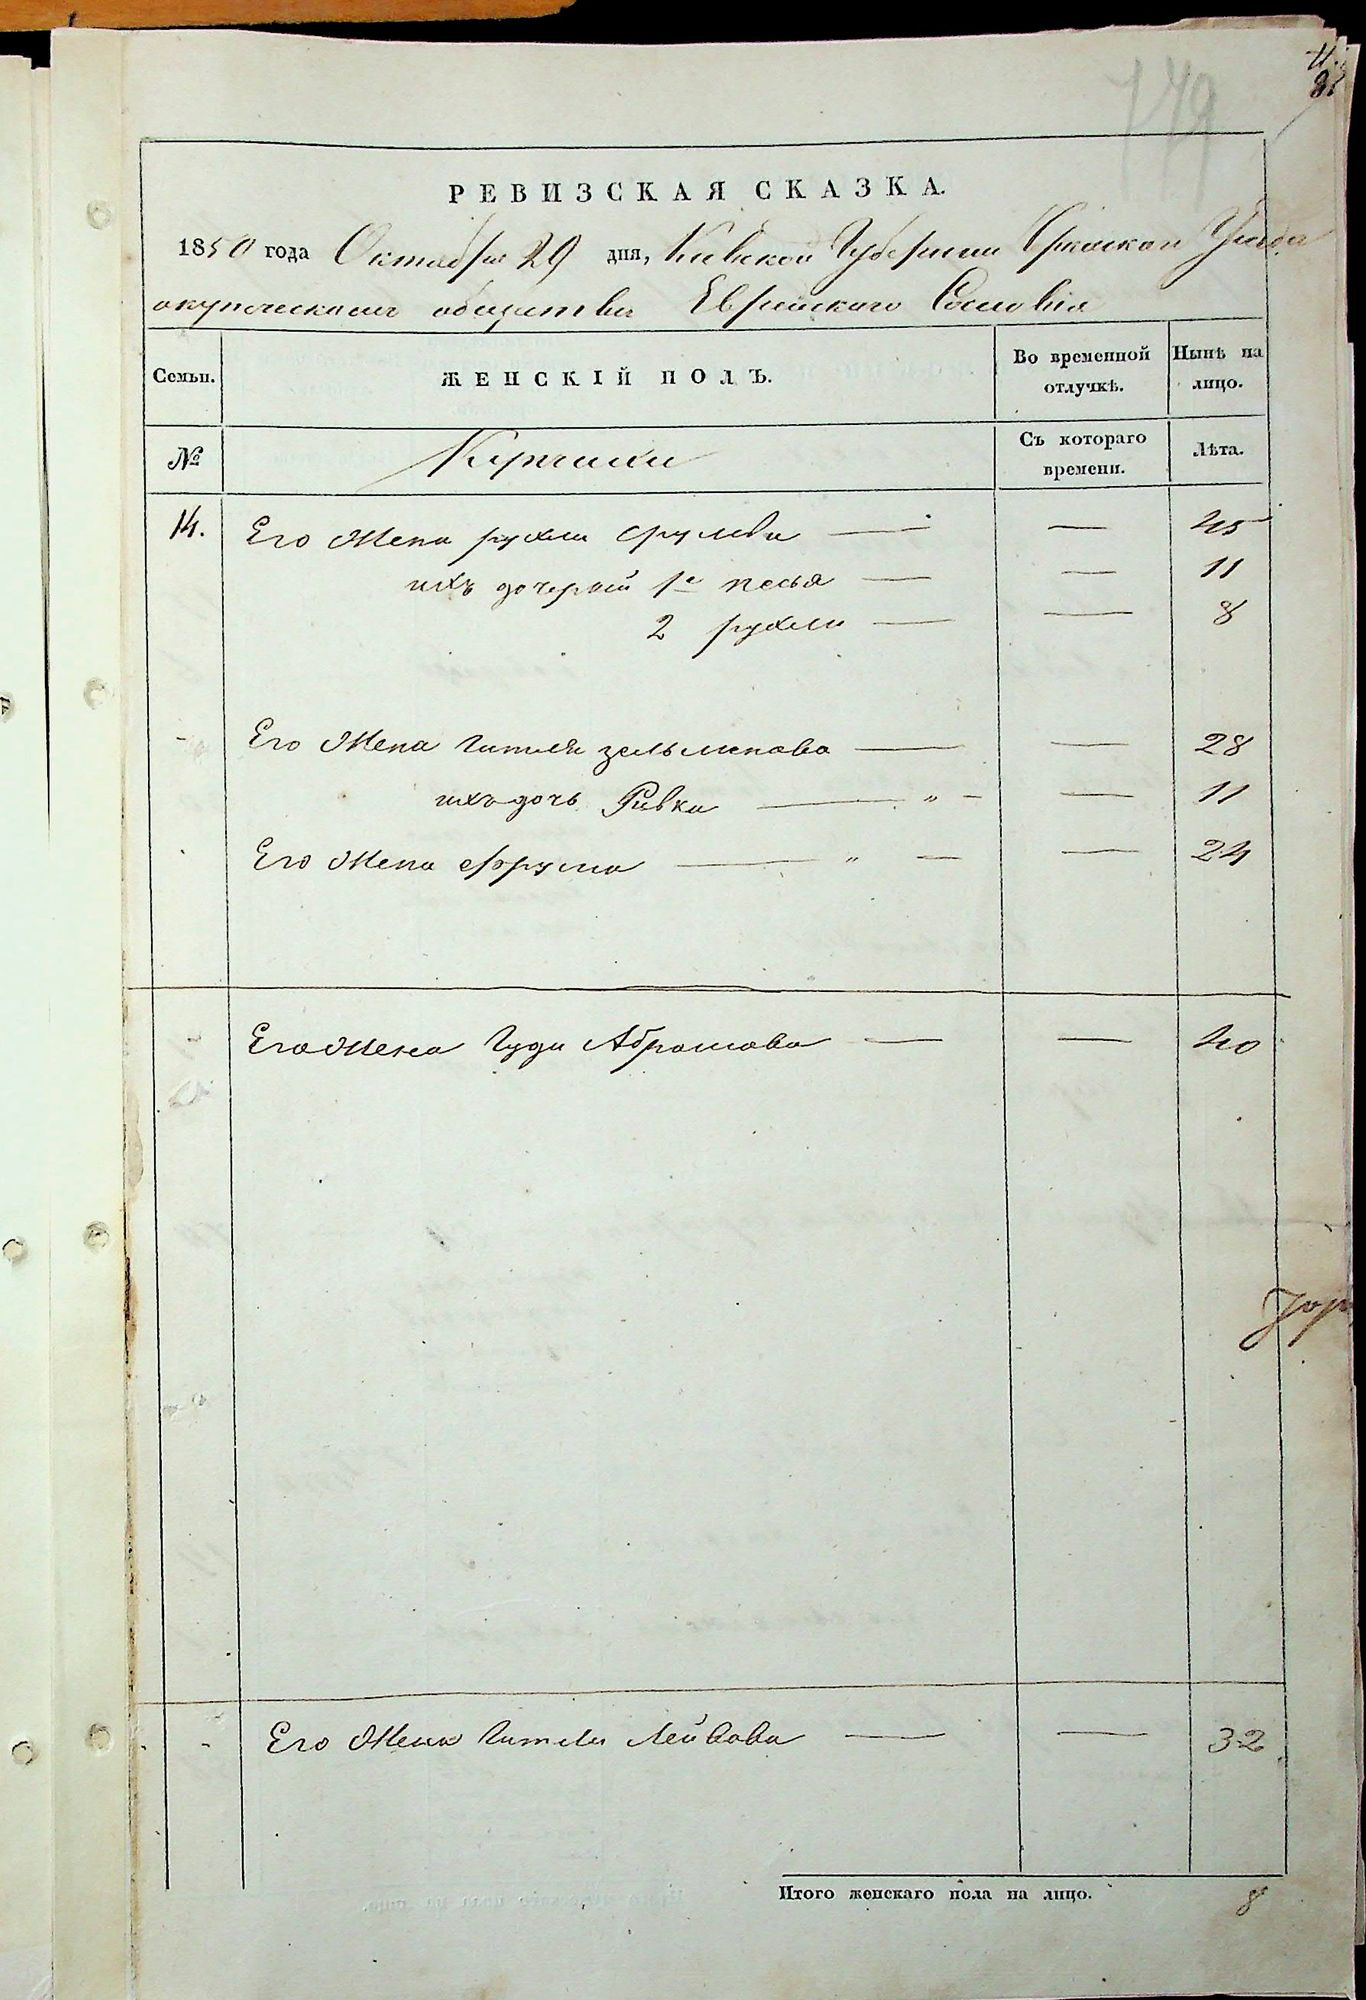 749
РЕВИЗСКАЯ СКАЗКА.
1850 года Октября 29 дня, Киевской Губернии Уезда
обществе Еврейского Сословія
Семьи. ЖЕНСКІЙ ПОЛЪ. Во временной отлучкѣ. Нынѣ на лицо.
№ Съ котораго времени. Лѣта.
14. Его Жена рухля срулева — — 45
ихъ дочерей 1е песья — — 11
2 рухли — — 8
Его Жена Гитля зельманова — — 28
ихъ дочь Ривка — " — — 11
Его Жена Фрума — " — — 24
Его Жена Гуди Абрамова — — 40
Его Жена Гитля Лейбова — — 32
Итого женскаго пола на лицо. 8